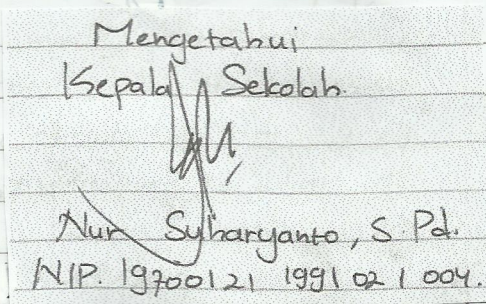 Mengetahui
Kepala Sekolah.
Nur Syharyanto, S. Pd.
NIP. 19700121 199102 1 004.